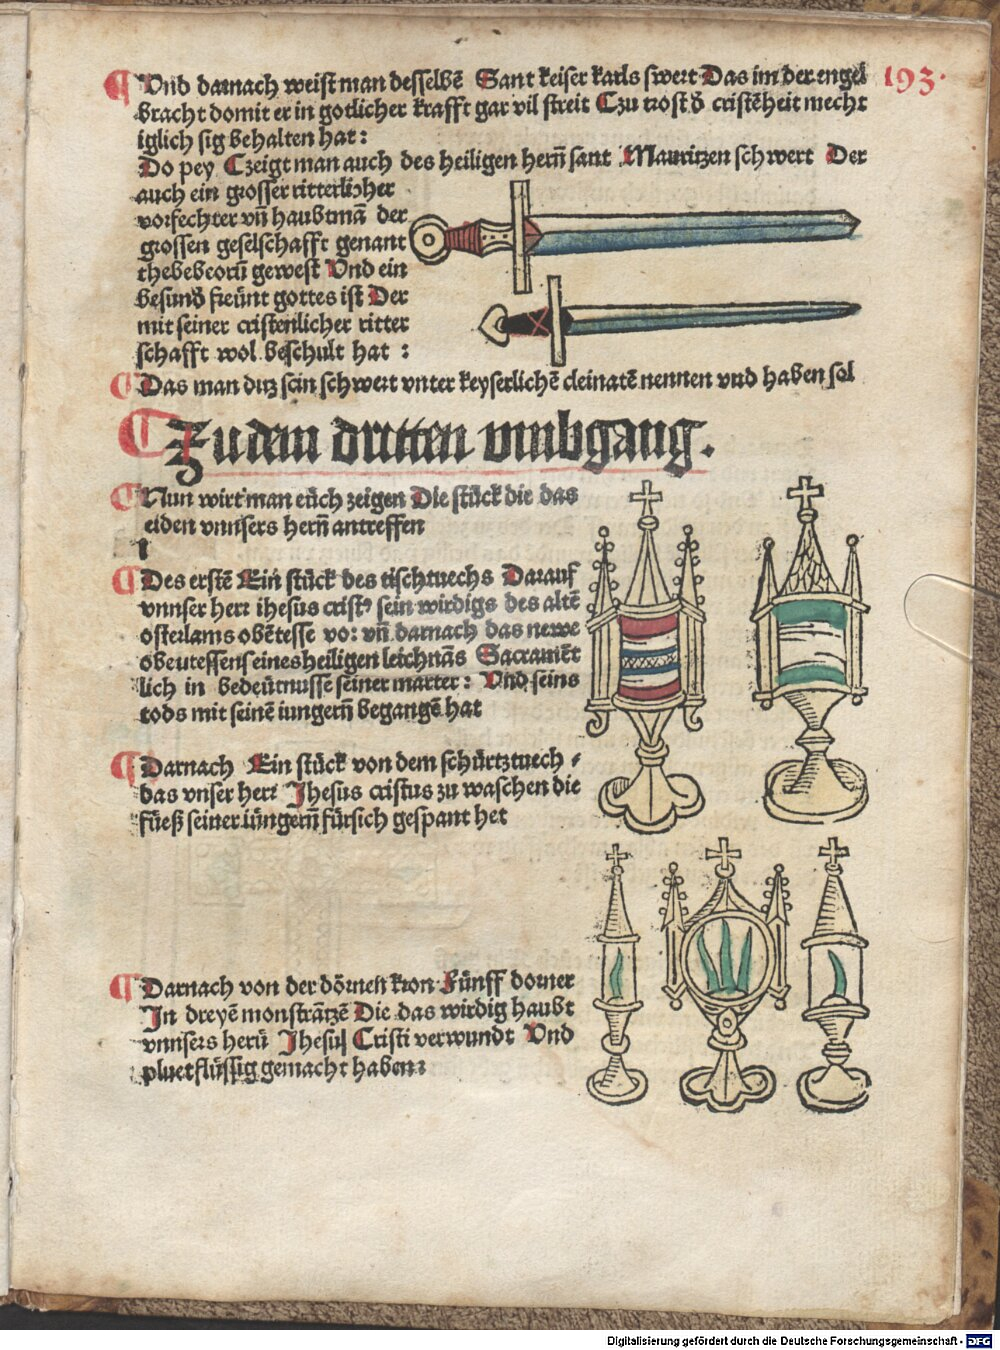 193.
Vnd darnach weist man desselbē Sant keiser karls swert Das im der engel
bracht domit er in gotlicher krafft gar vil streit Czu trost d̄ cristēheit mecht
iglich sig behalten hat:
Do pey Czeigt man auch des heiligen hern̄ sant Mauritzen schwert Der
auch ein grosser ritterlicher
vorfechter vn̄ haubtmā der
grossen geselschafft genant
thebeorū gewest Vnd ein
besund̄ freünt gottes ist Der
mit seiner cristenlicher ritter
schafft wol beschult hat :
Das man ditz sein schwert vnter keyserlichē cleinatē nennen vnd haben sol
Zu dem dritten vmbgang.
Nun wirt man eüch zeigen Die stück die das
leiden vnnsers hern̄ antreffen
Des erstē Ein stück des tischtuechs Darauf
vnnser herr ihesus crist⁹ sein wirdigs des altē
osterlams obētesse vor vn̄ darnach das newe
obentessen seines heiligen leichnās Sacramēt
lich in bedeütnusse seiner marter: Vnd seins
tods mit seinē iungern̄ begangē hat
Darnach Ein stück von dem schürtztuech /
das vnser herr Jhesus cristus zu waschen die
füeß seiner iüngern̄ fürsich gespant het
Darnach von der dörnen kron Fünff dorner
In dreyē monstrātzē Die das wirdig haubt
vnnsers hern̄ Jhesu Cristi verwundt Vnd
pluetflüssig gemacht haben:
Digitalisierung gefördert durch die Deutsche Forschungsgemeinschaft - DFG